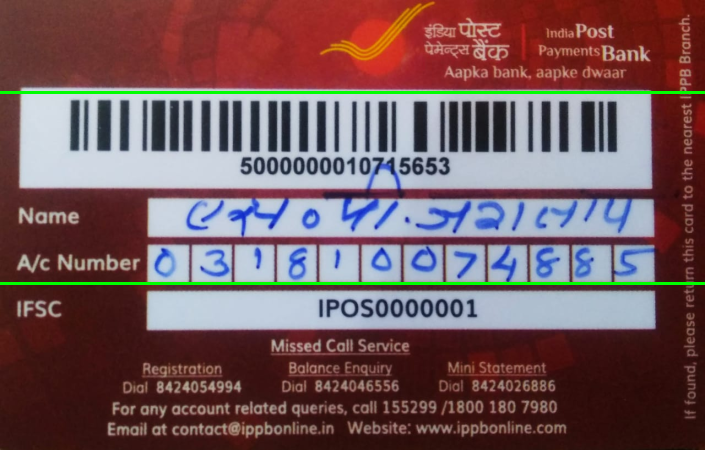 इंडिया पोस्ट
पेमेन्ट्स बैंक
India Post
Payments Bank
Aapka bank, aapke dwaar
5000000010715653
Name
A/c Number 0 3 1 8 1 0 0 7 4 8 8 5
IFSC IPOS0000001
Missed Call Service
Registration Balance Enquiry Mini Statement
Dial 8424054994 Dial 8424046556 Dial 8424026886
For any account related queries, call 155299 /1800 180 7980
Email at contact@ippbonline.in Website: www.ippbonline.com
If found, please return this card to the nearest IPPB Branch.